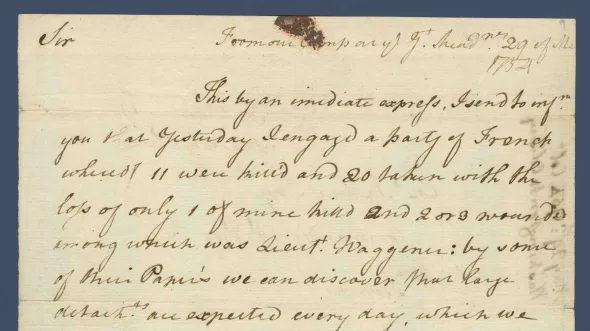 Sir
From our Camp at yᵉ Gᵗ Meadⁿˢ 29 of M
1754
This by an imediate express, I send to infᵐ
you that Yesterday I engagd a party of French
whereof 11 were killd and 20 taken with the
loss of only 1 of mine killd and 2 or 3 wounded
among which was Lieuᵗ. Waggener: by some
of their Paper's we can discover that large
detachᵗˢ are expected every day, which we